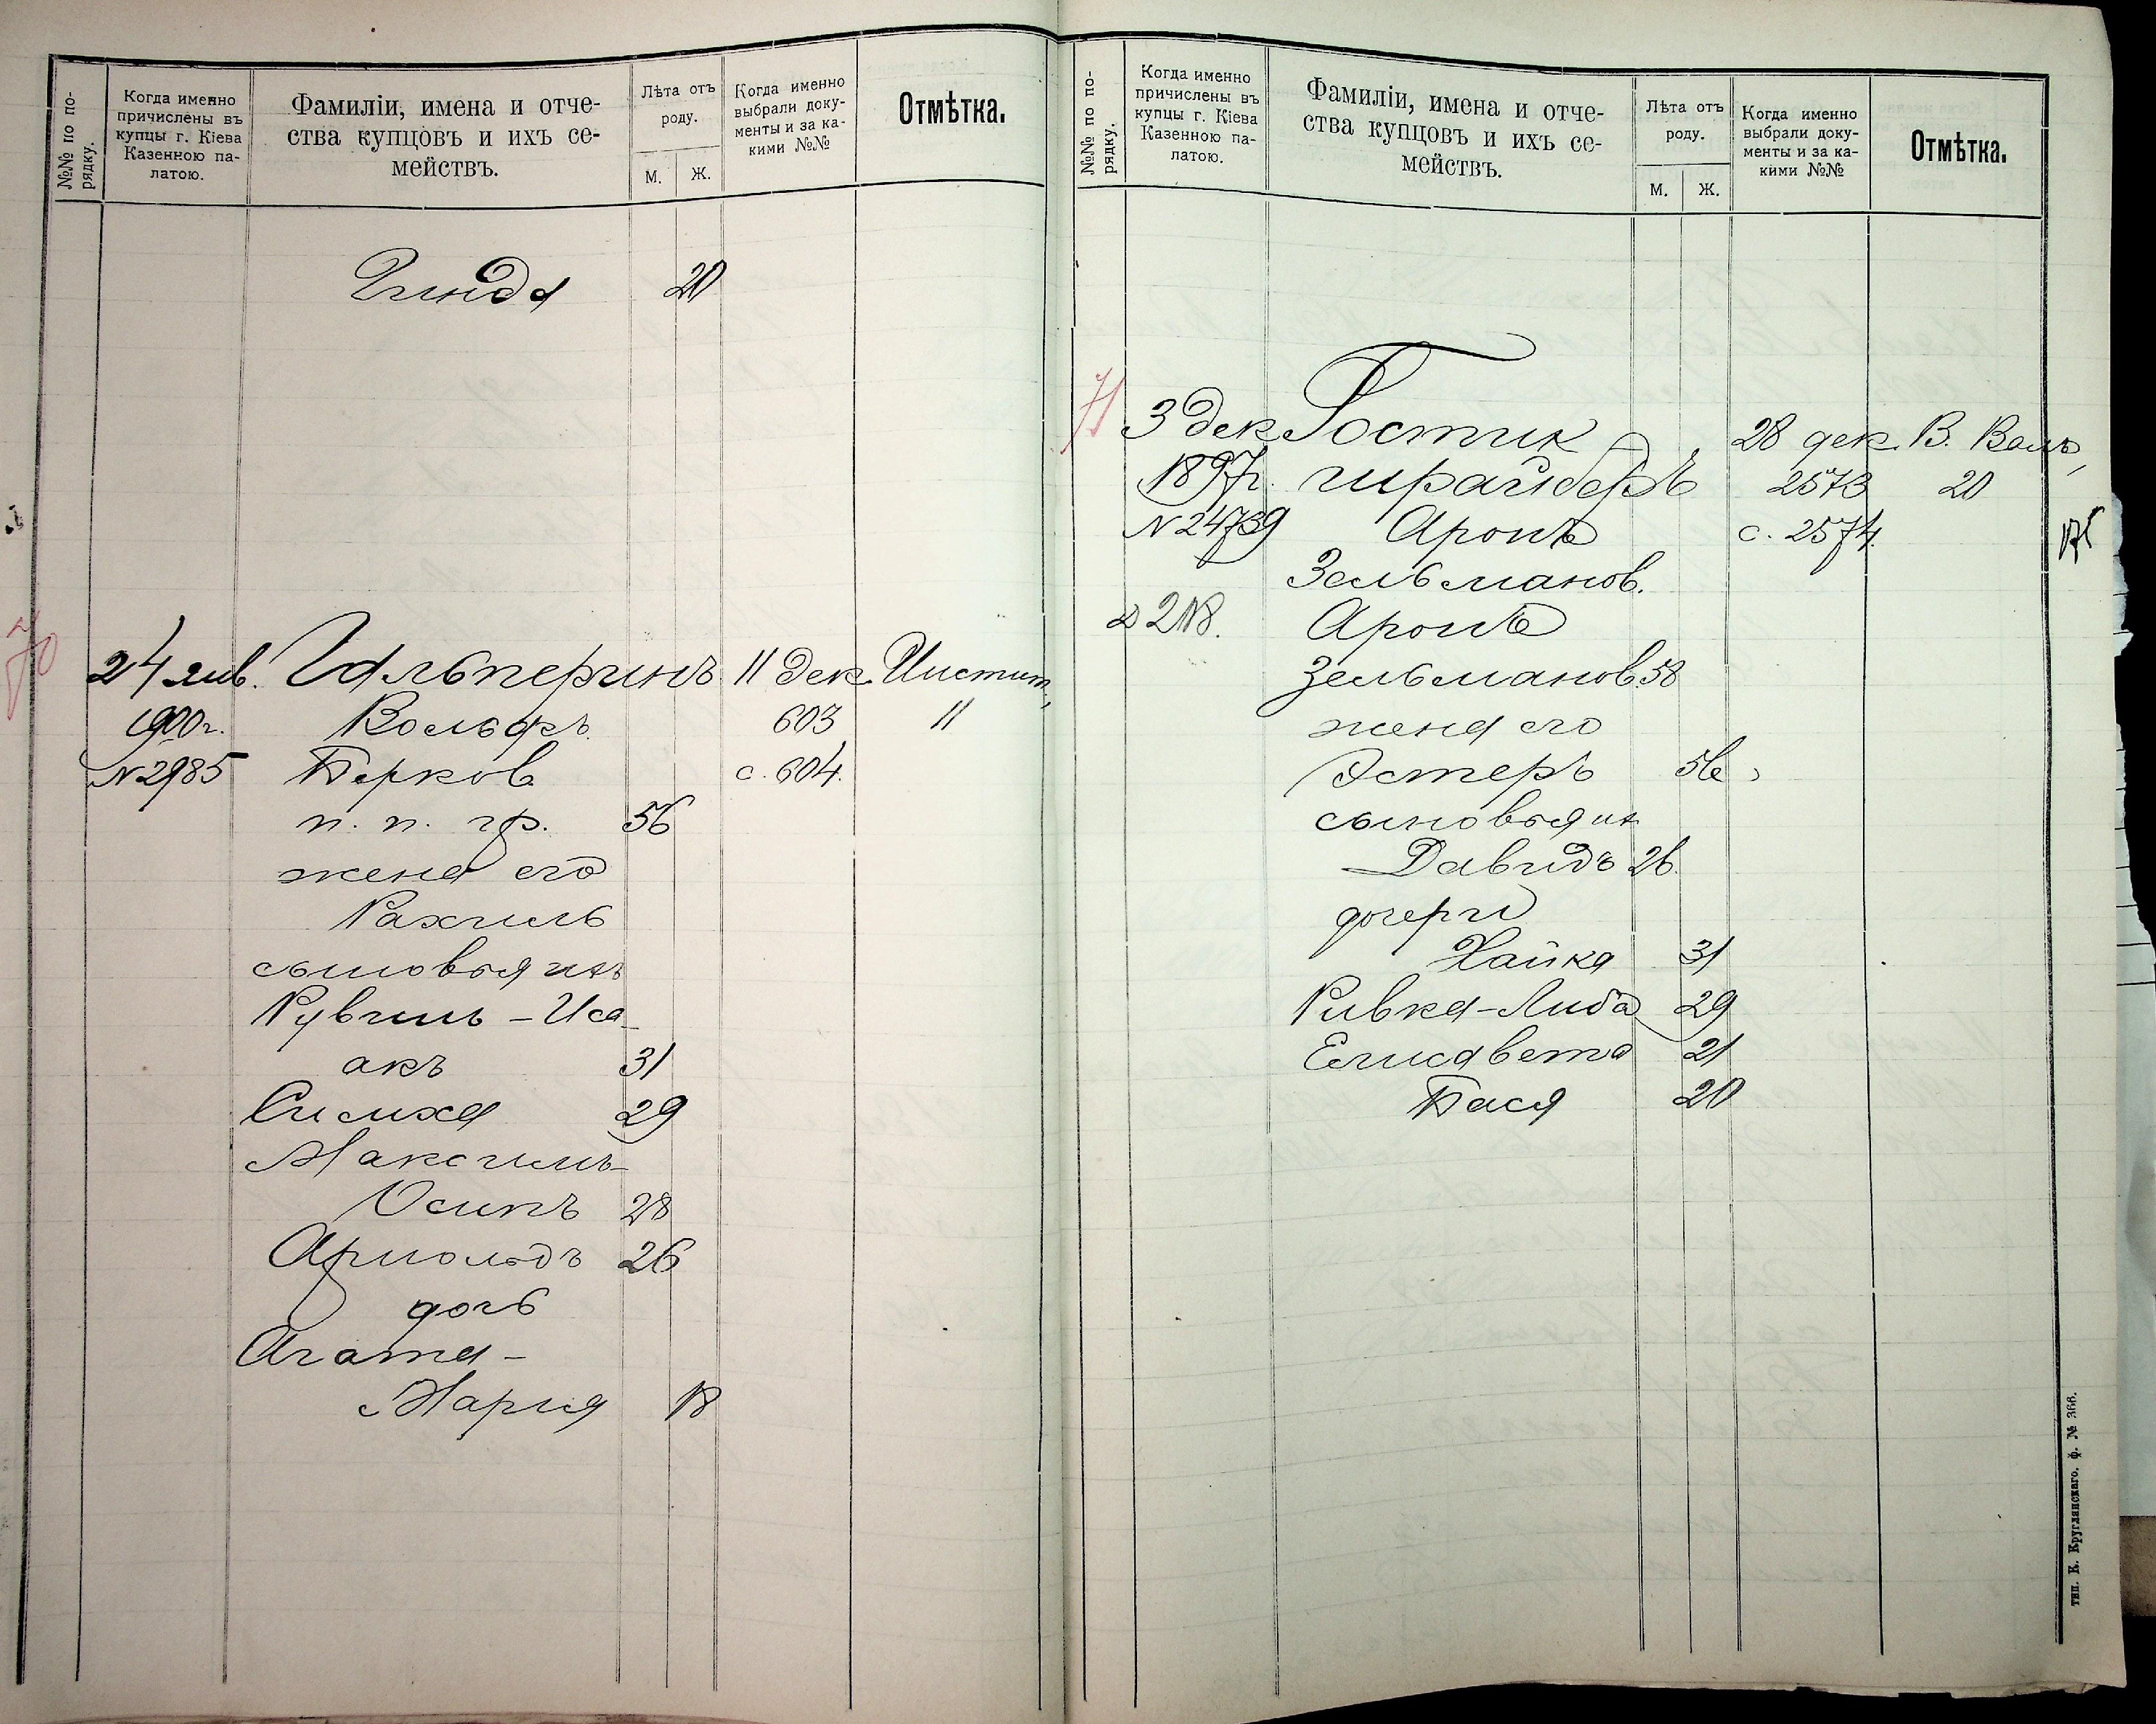 №№ по по-
рядку.
Когда именно
причислены въ
купцы г. Кіева
Казенною па-
латою.
Фамиліи, имена и отче-
ства купцовъ и ихъ се-
мействъ.
Лѣта отъ
роду.
М. Ж.
Когда именно
выбрали доку-
менты и за ка-
кими №№
Отмѣтка.
Гинда 20
70
24 янв. Гальперинъ 11 дек. Инстит,
1900 г. Вольфъ 603 11
№ 2985 Берков с. 604.
п. п. гр. 56
жена его
Рахиль
сыновья ихъ
Рувинъ - Иса-
акъ 31
Симха 29
Максимъ-
Осипъ 28
Арнольдъ 26
дочь
Агата-
Мария 18
№№ по по-
рядку.
Когда именно
причислены въ
купцы г. Кіева
Казенною па-
латою.
Фамиліи, имена и отче-
ства купцовъ и ихъ се-
мействъ.
Лѣта отъ
роду.
М. Ж.
Когда именно
выбрали доку-
менты и за ка-
кими №№
Отмѣтка.
71
3 дек Гостик 28 дек. В. Вал.,
1897 г. шрайберъ 2573 20
№ 24739 Аронъ с. 2574.
Зельманов.
218. Аронъ
Зельманов. 58
жена его
Эстеръ 56
сыновья их
Давидъ 26.
дочери
Хайка 31
Ривка-Либа 29
Елисавета 21
Бася 20
тип. К. Круглянскаго. ф. № 366.